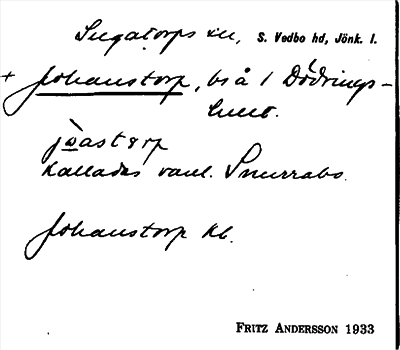 Lingatorps sn, S. Vedbo hd, Jönk. l.
+ Johanstorp, bs å 1 Dödrings-
hult.
jòastɘrp
Kallades vanl. Snurrabo.
Johanstorp kb.
FRITZ ANDERSSON 1933